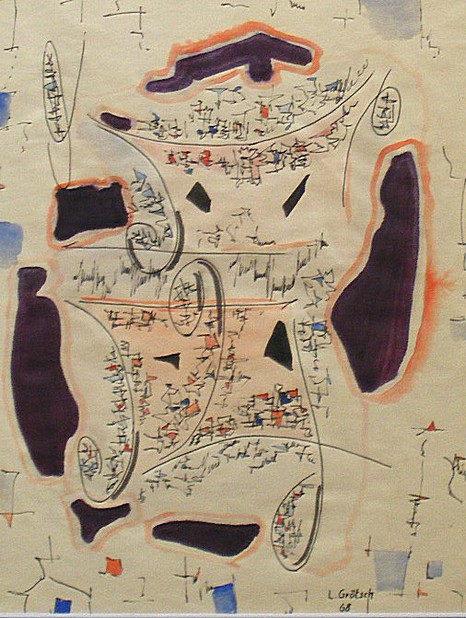 L. Grötsch
68